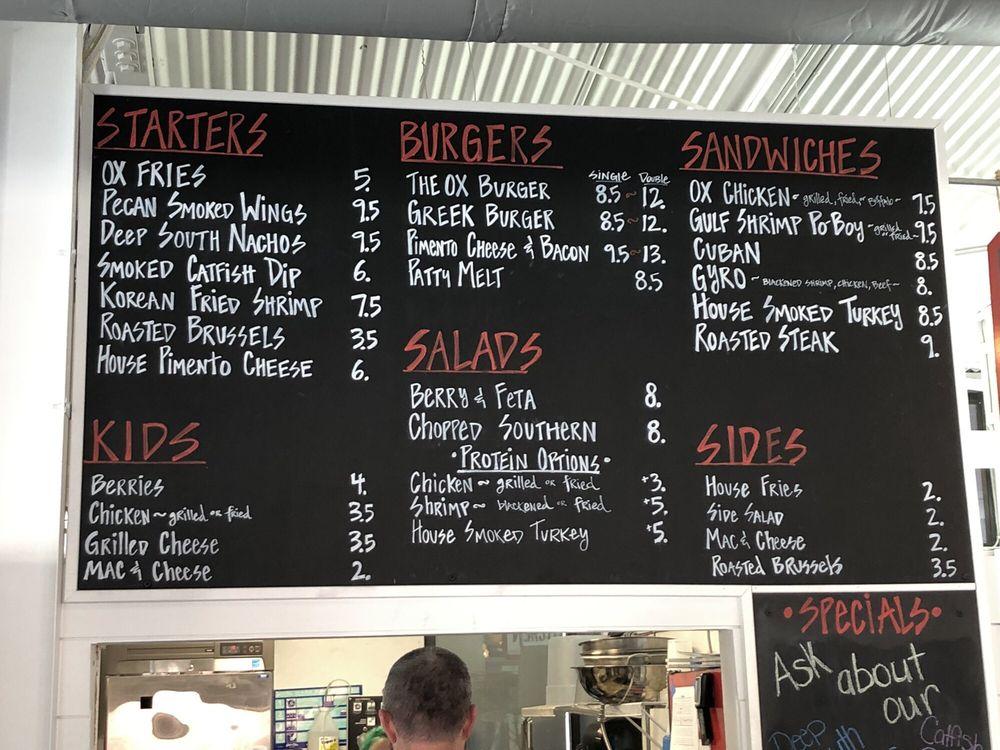 STARTERS
OX FRIES 5.
PECAN SMOKED WINGS 9.5
DEEP SOUTH NACHOS 9.5
SMOKED CATFISH DIP 6.
KOREAN FRIED SHRIMP 7.5
ROASTED BRUSSELS 3.5
HOUSE PIMENTO CHEESE 6.
KIDS
BERRIES 4.
CHICKEN ~ grilled or fried 3.5
GRILLED CHEESE 3.5
MAC & CHEESE 2.
BURGERS
SINGLE DOUBLE
THE OX BURGER 8.5 ~ 12.
GREEK BURGER 8.5 ~ 12.
PIMENTO CHEESE & BACON 9.5 ~ 13.
PATTY MELT 8.5
SALADS
BERRY & FETA 8.
CHOPPED SOUTHERN 8.
• PROTEIN OPTIONS •
CHICKEN ~ grilled or fried +3.
SHRIMP ~ blackened or fried +5.
HOUSE SMOKED TURKEY +5.
SANDWICHES
OX CHICKEN ~ grilled, fried, or Buffalo ~ 7.5
GULF SHRIMP PO-BOY ~ grilled or fried ~ 9.5
CUBAN 8.5
GYRO ~ BLACKENED SHRIMP, CHICKEN, BEEF ~ 8.
HOUSE SMOKED TURKEY 8.5
ROASTED STEAK 9.
SIDES
HOUSE FRIES 2.
SIDE SALAD 2.
MAC & CHEESE 2.
ROASTED BRUSSELS 3.5
• SPECIALS •
Ask about
our
Deep
Catfish